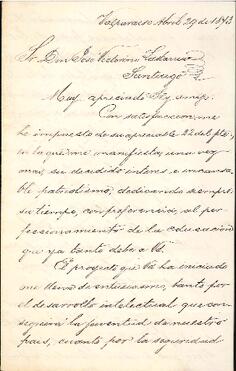 Valparaiso Abril 29 de 1893
Sr. Don José Victorino Lastarria
Santiago
Muy apreciado Sr. y amigo.
Con satisfaccion me
he impuesto de su apreciable 22 del pte.
en la que me manifiesta, una vez
mas, su decidido interes e incansa
ble patriotismo, dedicando siempre
su tiempo, con preferencia, al per
feccionamiento de la educacion
que ya tanto debe a Ud.
El proyecto que Ud. ha iniciado
me llena de entusiasmo, tanto por
el desarrollo intelectual que con
seguirá la juventud de nuestro
pais, cuanto por la seguridad